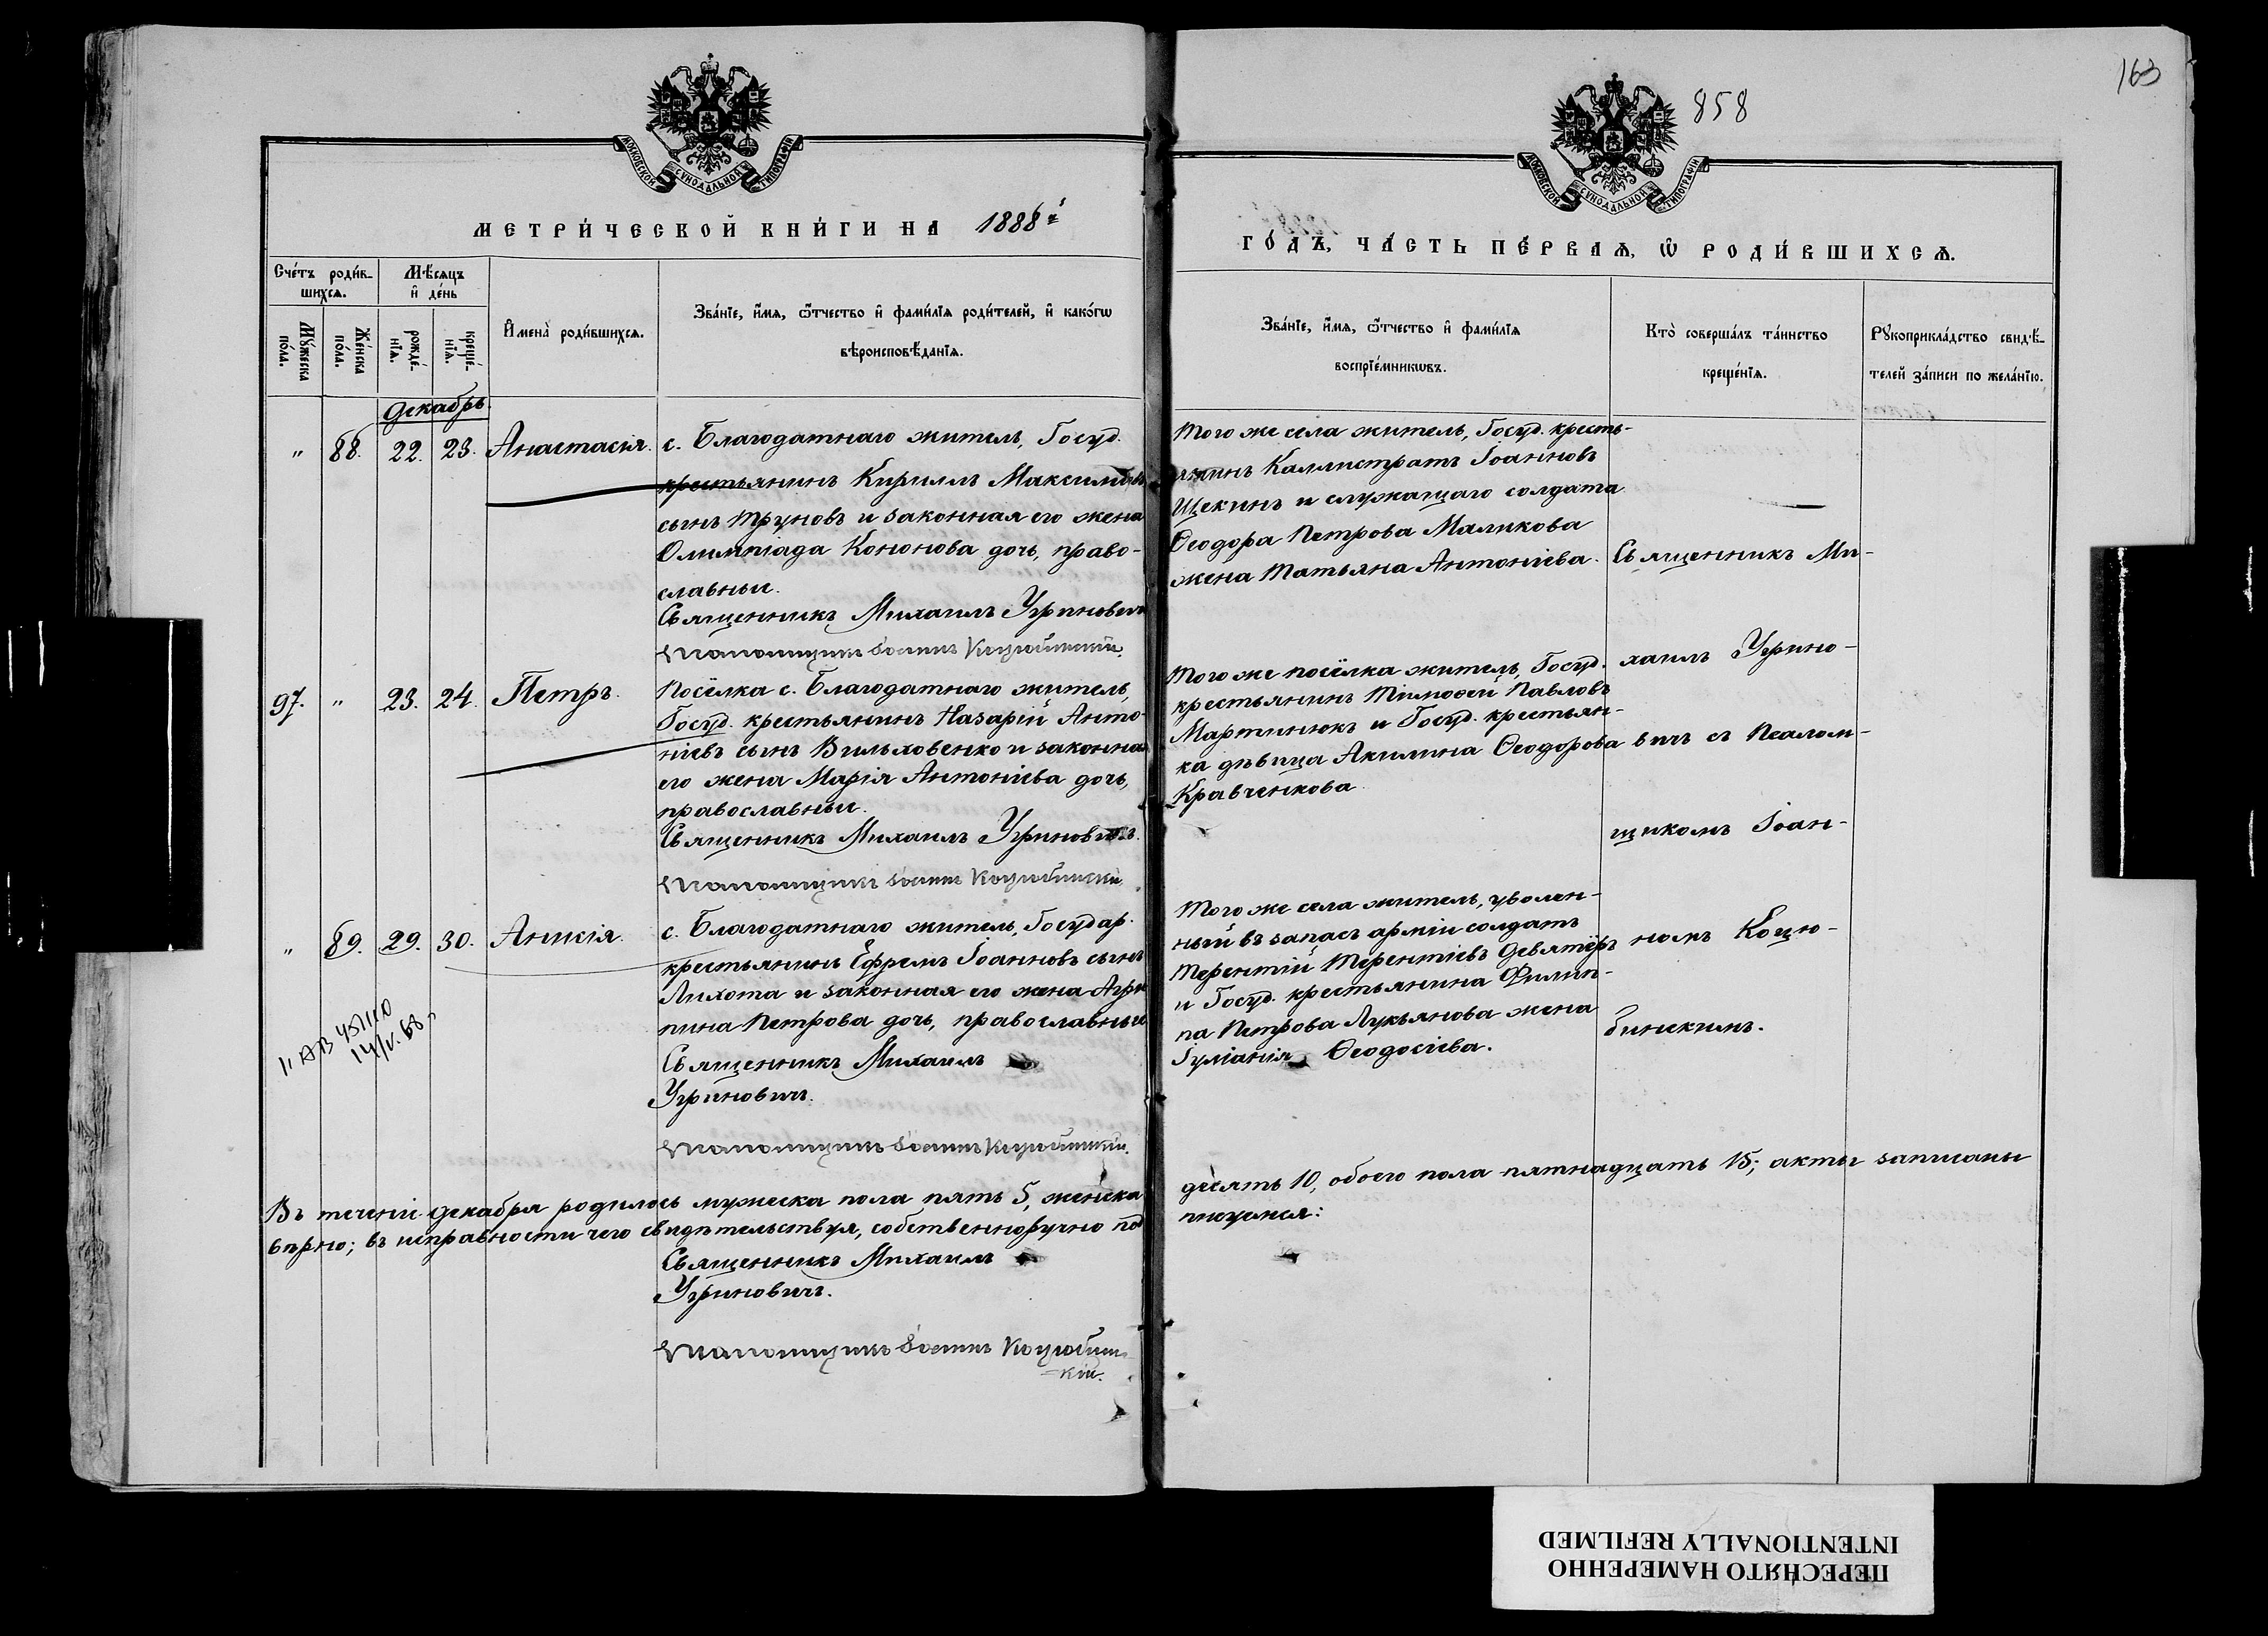 163
858
МОСКОВСКОЙ СѴНОДАЛЬНОЙ ТИПОГРАФІИ
МОСКОВСКОЙ СѴНОДАЛЬНОЙ ТИПОГРАФІИ
МЕТРИ́ЧЕСКОЙ КНИ́ГИ НА 1888й
ГО́ДЪ, ЧА́СТЬ ПЕ́РВАѦ, Ѡ РОДИ́ВШИХСѦ.
Сче́тъ роди́в-
шихсѧ.
Мѣ́сѧцъ
и҆ де́нь
Мꙋ́жеска по́ла.
Же́нска по́ла.
рожде́-нїѧ.
креще́-нїѧ.
И҆мена̀ роди́вшихсѧ.
Зва́нїе, и҆́мѧ, ѻ҆́тчество и҆ фами́лїѧ роди́телей, и҆ како́гѡ
вѣроисповѣ́данїѧ.
Зва́нїе, и҆́мѧ, ѻ҆́тчество и҆ фами́лїѧ
воспрїе́мникѡвъ.
Кто̀ соверша́лъ та́инство
креще́нїѧ.
Рꙋкоприкла́дство свидѣ́-
телей за́писи по жела́нїю.
Декабрь.
" 88. 22. 23. Анастасія.
с. Благодатнаго житель, Госуд.
крестьянинъ Кириллъ Максимовъ
сынъ Труновъ и законная его жена
Олимпіада Кононова дочь, право-
славныи.
Священникъ Михаилъ Угриновичъ
Псаломщикъ Іоаннъ Коцюбинскій.
Того же села житель, Госуд. кресть-
янинъ Каллистратъ Іоанновъ
Щекинъ и служащаго солдата
Ѳеодора Петрова Маликова
жена Татьяна Антоніева.
97. " 23. 24. Петръ.
Посёлка с. Благодатнаго житель,
Госуд. крестьянинъ Назарій Анто-
ніевъ сынъ Вильховенко и законная
его жена Марія Антоніева дочь,
православныи.
Священникъ Михаилъ Угриновичъ.
Псаломщикъ Іоаннъ Коцюбинскій
Того же посёлка житель, Госуд.
крестьянинъ Тимоѳей Павловъ
Мартинюкъ и Госуд. крестьян-
ка дѣвица Акилина Ѳеодорова
Кравченкова
" 89. 29. 30. Анисія.
с. Благодатнаго житель, Государ.
крестьянинъ Ефремъ Іоанновъ сынъ
Лихота и законная его жена Агри
пина Петрова дочь, православныи
Священникъ Михаилъ
Угриновичъ.
Псаломщикъ Іоаннъ Коцюбинскій.
Того же села житель, уволен-
ный въ запасъ арміи солдатъ
Терентій Терентіевъ Девятёръ
и Госуд. крестьянина Филип-
па Петрова Лукьянова жена
Іуліанія Ѳеодосіева.
Священникъ Ми-
хаилъ Угрино-
вичъ съ Псалом-
щикомъ Іоан-
номъ Коцю-
бинскимъ.
Въ теченіи декабря родилось мужеска пола пять 5, женска
десять 10, обоего пола пятнадцать 15; акты записаны
вѣрно; въ исправности чего свидѣтельствуя, собственноручно под
писуемся:
Священникъ Михаилъ
Угриновичъ.
Псаломщикъ Іоаннъ Коцюбин-
-кій.
ПЕРЕСНЯТО НАМЕРЕННО
INTENTIONALLY REFILMED